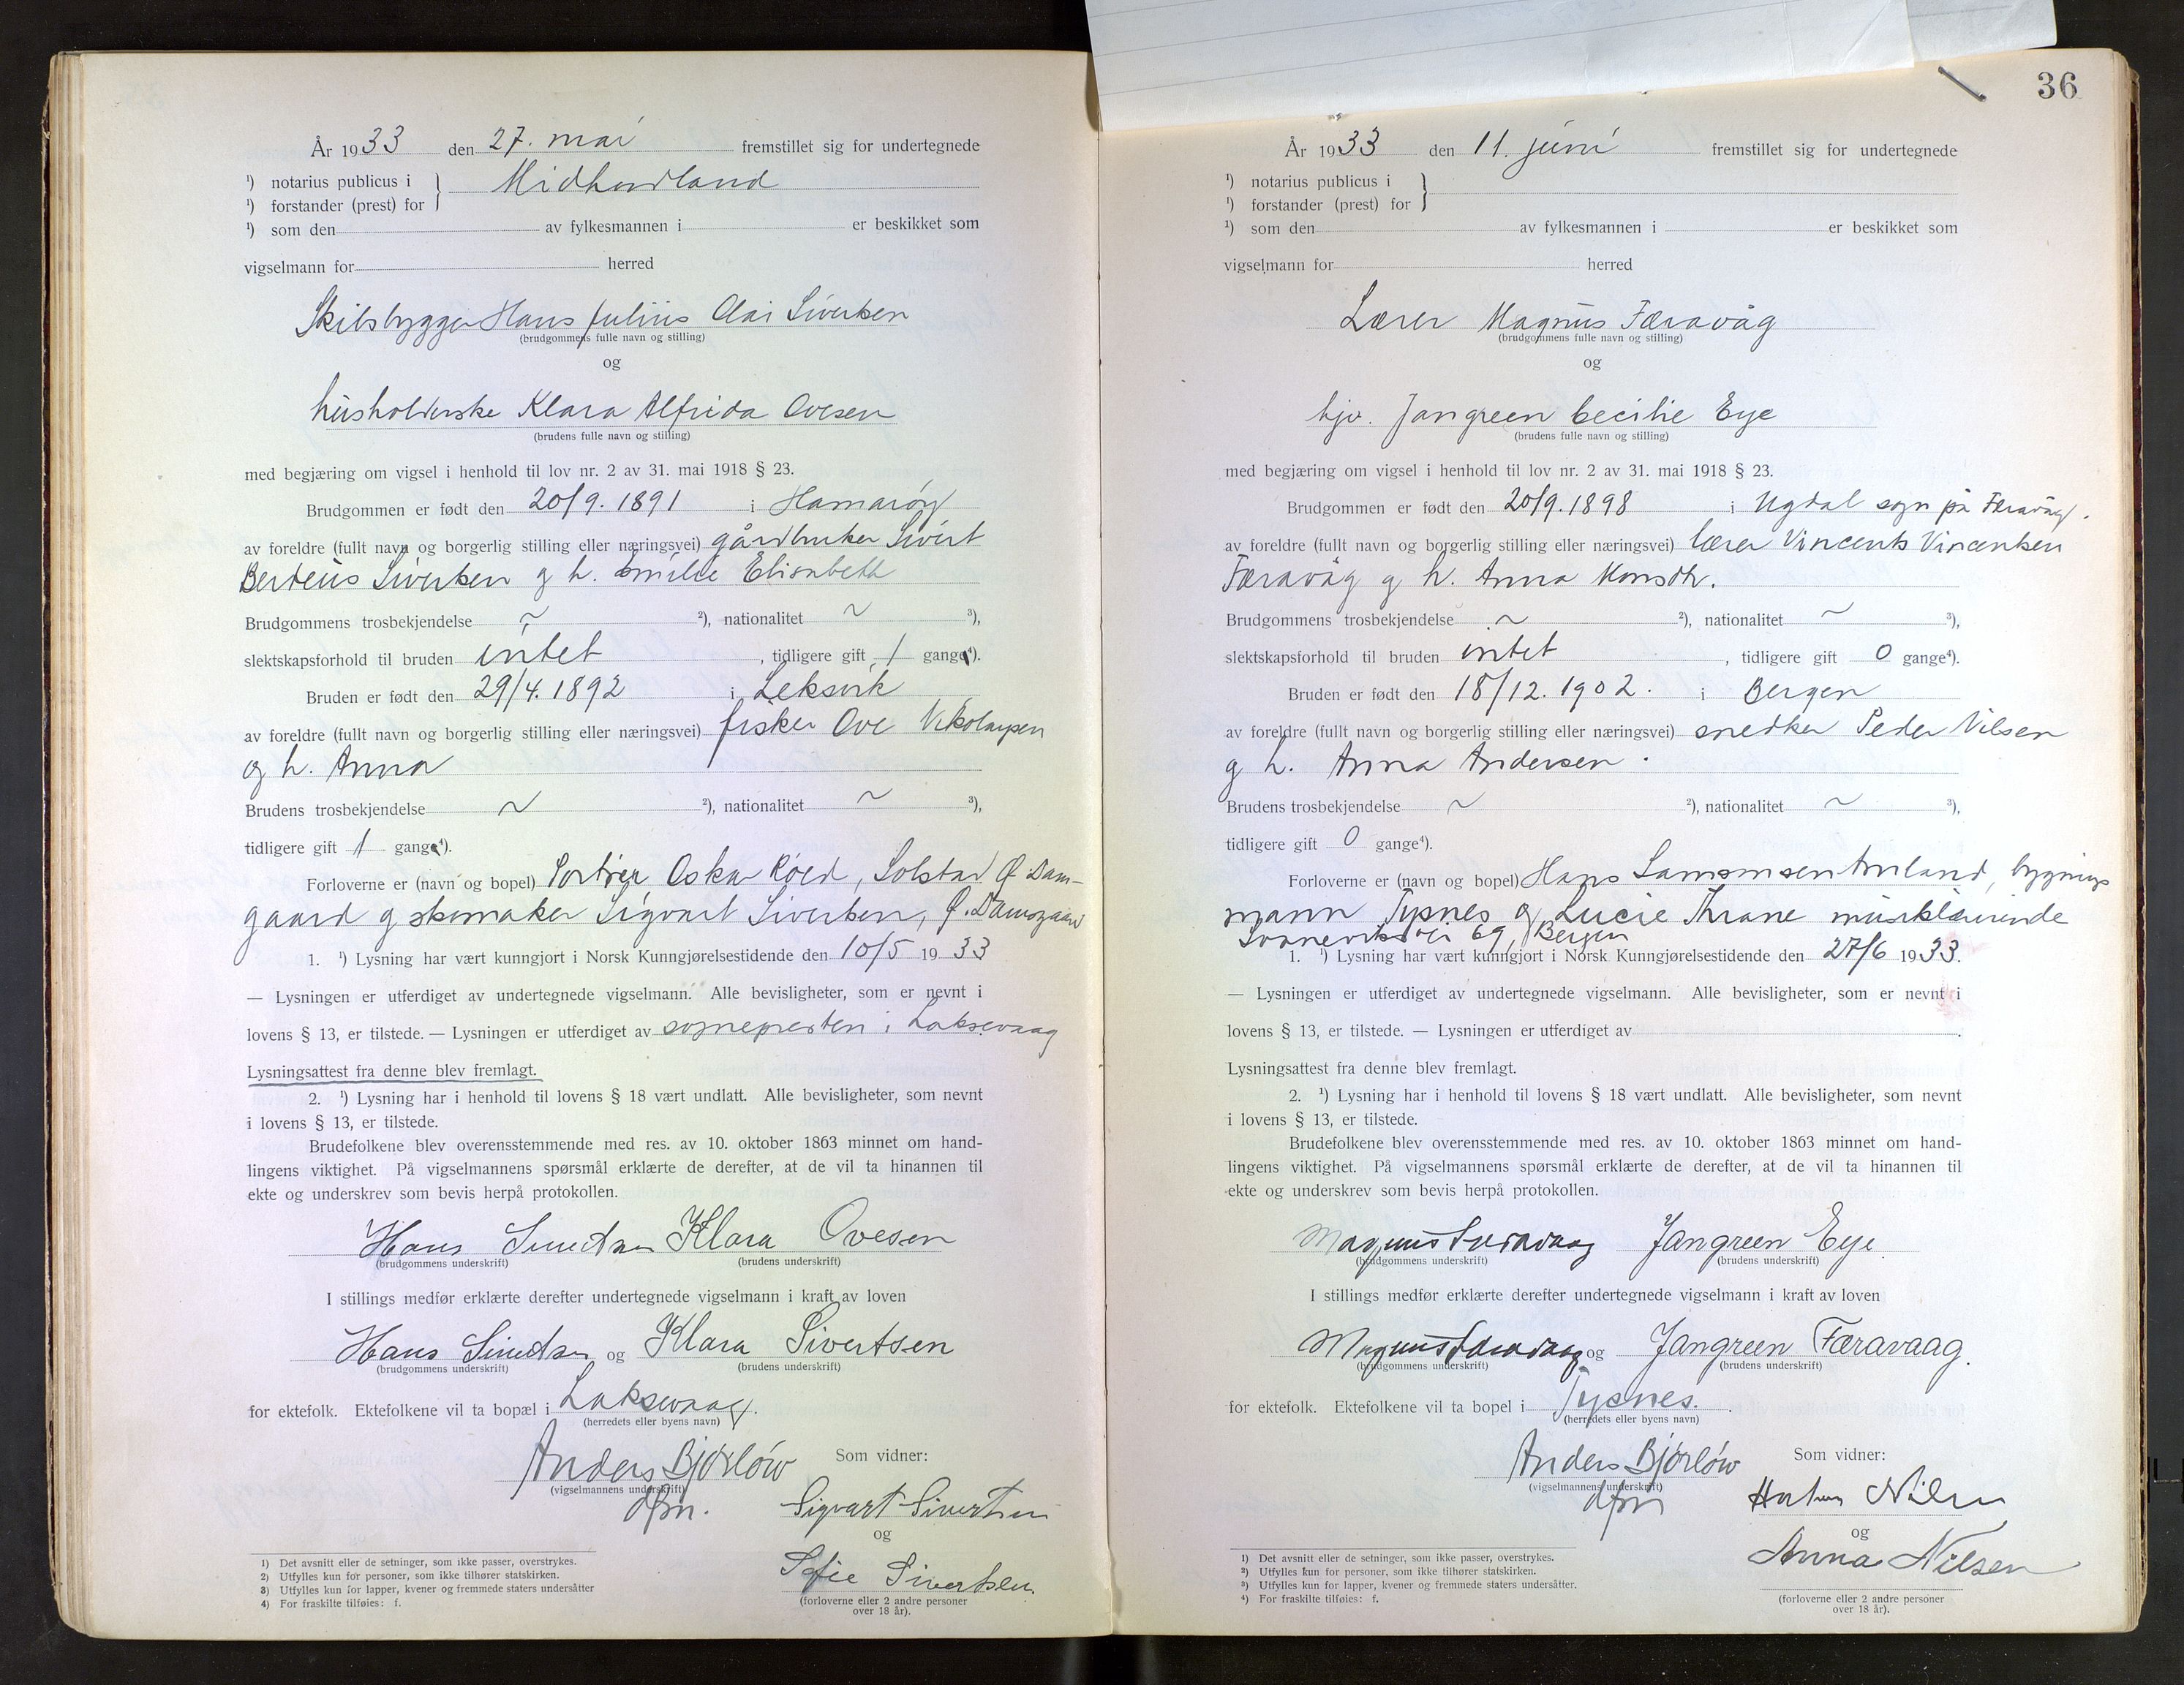 År 1933 den 27. mai fremstillet sig for undertegnede
¹) notarius publicus i } Midhordland
¹) forstander (prest) for
¹) som den av fylkesmannen i er beskikket som
vigselmann for herred
Skibsbygger Hans Julius Olai Sivertsen
(brudgommens fulle navn og stilling)
og
husholderske Klara Alfrida Ovesen
(brudens fulle navn og stilling)
med begjæring om vigsel i henhold til lov nr. 2 av 31. mai 1918 § 23.
Brudgommen er født den 20/9. 1891 i Hamarøy
av foreldre (fullt navn og borgerlig stilling eller næringsvei) gårdbruker Sivert
Berteus Sivertsen og h. Emilie Elisabeth
Brudgommens trosbekjendelse ~ ²), nationalitet ~ ³),
slektskapsforhold til bruden intet, tidligere gift 1 gang⁴).
Bruden er født den 29/4. 1892 i Leksvik
av foreldre (fullt navn og borgerlig stilling eller næringsvei) fisker Ove Nikolaysen
og h. Anna
Brudens trosbekjendelse ~ ²), nationalitet ~ ³),
tidligere gift 1 gang⁴).
Forloverne er (navn og bopel) Oskar Röed, Solstad Ø. Dam-
gaard og skomaker Sigvart Sivertsen, Ø. Damsgaard
1. ¹) Lysning har vært kunngjort i Norsk Kunngjørelsestidende den 10/5 1933
— Lysningen er utferdiget av undertegnede vigselmann. Alle bevisligheter, som er nevnt i
lovens § 13, er tilstede. — Lysningen er utferdiget av sognepresten i Laksevaag
Lysningsattest fra denne blev fremlagt.
2. ¹) Lysning har i henhold til lovens § 18 vært undlatt. Alle bevisligheter, som nevnt
i lovens § 13, er tilstede.
Brudefolkene blev overensstemmende med res. av 10. oktober 1863 minnet om hand-
lingens viktighet. På vigselmannens spørsmål erklærte de derefter, at de vil ta hinannen til
ekte og underskrev som bevis herpå protokollen.
Hans Sivertsen Klara Ovesen
(brudgommens underskrift) (brudens underskrift)
I stillings medfør erklærte derefter undertegnede vigselmann i kraft av loven
Hans Sivertsen og Klara Sivertsen
(brudgommens underskrift) (brudens underskrift)
for ektefolk. Ektefolkene vil ta bopæl i Laksevaag.
(herredets eller byens navn)
Anders Bjørløw Som vidner:
(vigselmannens underskrift)
dfm. Sigvart Sivertsen
og
Sofie Sivertsen.
(forloverne eller 2 andre personer
over 18 år).
1) Det avsnitt eller de setninger, som ikke passer, overstrykes.
2) Utfylles kun for personer, som ikke tilhører statskirken.
3) Utfylles kun for lapper, kvener og fremmede staters undersåtter
4) For fraskilte tilføies: f.
36
År 1933 den 11. juni fremstillet sig for undertegnede
¹) notarius publicus i }
¹) forstander (prest) for
¹) som den av fylkesmannen i er beskikket som
vigselmann for herred
Lærer Magnus Færavåg
(brudgommens fulle navn og stilling)
og
hjv. Jangreen Cecilie Eye
(brudens fulle navn og stilling)
med begjæring om vigsel i henhold til lov nr. 2 av 31. mai 1918 § 23.
Brudgommen er født den 20/9. 1898 i Ugdal sogn på Færavåg.
av foreldre (fullt navn og borgerlig stilling eller næringsvei) lærer Vincents Vincentsen
Færavåg og h. Anna Monsdtr.
Brudgommens trosbekjendelse ~ ²), nationalitet ~ ³),
slektskapsforhold til bruden intet, tidligere gift 0 gange⁴).
Bruden er født den 18/12. 1902. i Bergen
av foreldre (fullt navn og borgerlig stilling eller næringsvei) snedker Peder Nilsen
og h. Anna Andersen.
Brudens trosbekjendelse ~ ²), nationalitet ~ ³),
tidligere gift 0 gange⁴).
Forloverne er (navn og bopel) Hans Samsonsen Amland, bygnings
mann Tysnes og Lucie Thrane musiklærerinde
Svaneviksvei 69, Bergen
1. ¹) Lysning har vært kunngjort i Norsk Kunngjørelsestidende den 27/6 1933.
— Lysningen er utferdiget av undertegnede vigselmann. Alle bevisligheter, som er nevnt i
lovens § 13, er tilstede. — Lysningen er utferdiget av .
Lysningsattest fra denne blev fremlagt.
2. ¹) Lysning har i henhold til lovens § 18 vært undlatt. Alle bevisligheter, som nevnt
i lovens § 13, er tilstede.
Brudefolkene blev overensstemmende med res. av 10. oktober 1863 minnet om hand-
lingens viktighet. På vigselmannens spørsmål erklærte de derefter, at de vil ta hinannen til
ekte og underskrev som bevis herpå protokollen.
Magnus Færavaag Jangreen Eye
(brudgommens underskrift) (brudens underskrift)
I stillings medfør erklærte derefter undertegnede vigselmann i kraft av loven
Magnus Færavaag og Jangreen Færavaag.
(brudgommens underskrift) (brudens underskrift)
for ektefolk. Ektefolkene vil ta bopel i Tysnes.
(herredets eller byens navn)
Anders Bjørløw Som vidner:
(vigselmannens underskrift)
dfm Nilsen
og
Anna Nilsen
(forloverne eller 2 andre personer
over 18 år).
1) Det avsnitt eller de setninger, som ikke passer, overstrykes.
2) Utfylles kun for personer, som ikke tilhører statskirken.
3) Utfylles kun for lapper, kvener og fremmede staters undersåtter.
4) For fraskilte tilføies: f.